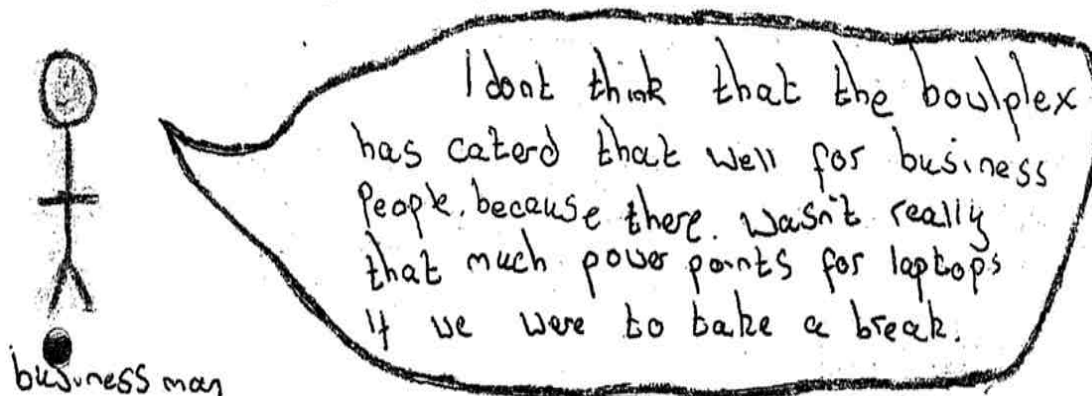 I dont think that the bowlplex
has caterd that well for business
People. because there. wasn't really
that much power points for laptops
If we were to take a break.
business man